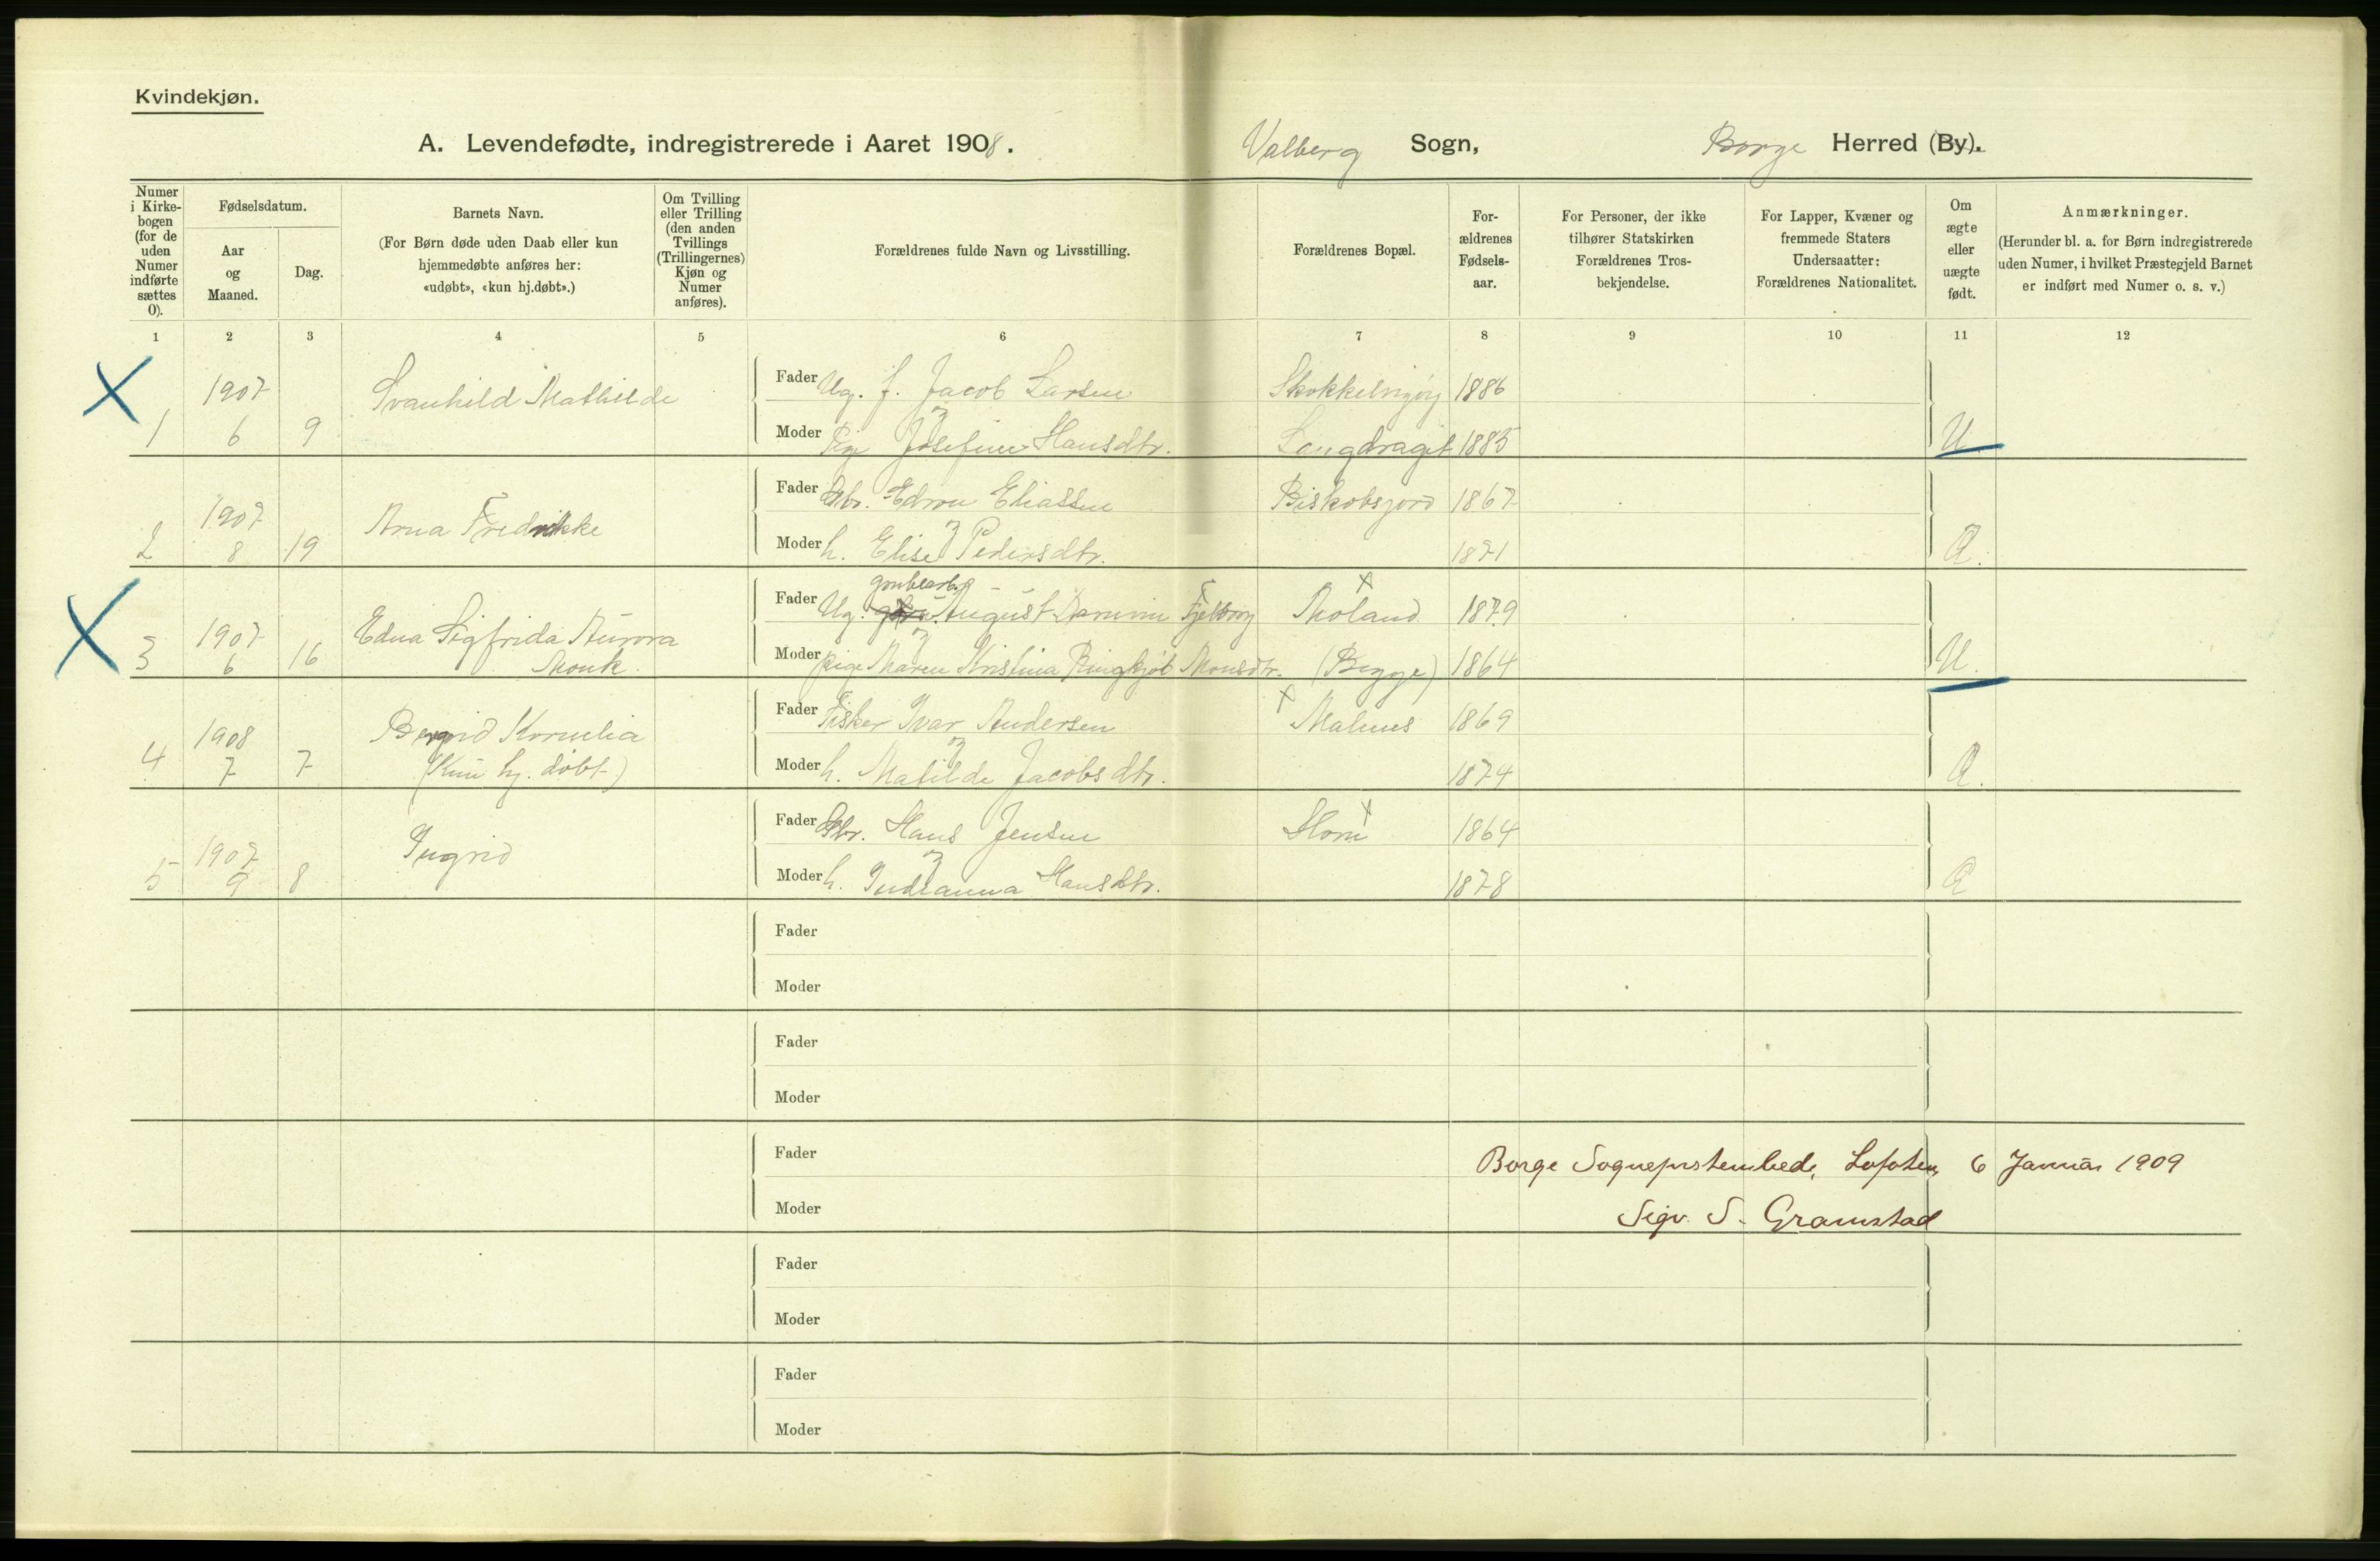 Kvindekjøn.
A. Levendefødte, indregistrerede i Aaret 1908.
Valberg Sogn,
Borge Herred (By).
Numer i Kirkebogen (for de uden Numer indførte sættes 0).
Fødselsdatum.
Aar og Maaned.
Dag.
Barnets Navn.
(For Børn døde uden Daab eller kun
hjemmedøbte anføres her:
«udøbt», «kun hj.døbt».)
Om Tvilling
eller Trilling
(den anden
Tvillings
(Trillingernes)
Kjøn og
Numer
anføres).
Forældrenes fulde Navn og Livsstilling.
Forældrenes Bopæl.
For-
ældrenes
Fødsels-
aar.
For Personer, der ikke
tilhører Statskirken
Forældrenes Tros-
bekjendelse.
For Lapper, Kvæner og
fremmede Staters
Undersaatter:
Forældrenes Nationalitet.
Om
ægte
eller
uægte
født.
Anmærkninger.
(Herunder bl. a. for Børn indregistrerede
uden Numer, i hvilket Præstegjeld Barnet
er indført med Numer o. s. v.)
1 2 3 4 5 6 7 8 9 10 11 12
1907 Svanhild Mathilde Fader Ug. f. Jacob Larsen 1886
1 6 9 Moder Pige Josefine Hansdtr. Langdraget 1885 U
1907 Arna Fredrikke Fader Gbr. Edvin Eliassen 1867
2 8 19 Moder h. Elise Pedersdtr. 1871 Æ.
grubearb.
1907 Edna Sigfrida Aurora Fader Ug. August Fjelborg Moland 1879
3 6 16 Monk. Moder pige Maren Kristina Ringkjøb Monsdtr. (Begge) 1864 U.
1908 Kornelia Fader Fisker Ivar Andersen Malnes 1869
4 7 7 (Kun hj. døbt) Moder h. Matilde Jacobsdtr. 1874 Æ.
1907 Ingrid Fader Gbr. Hans Jensen Horn 1864
5 9 8 Moder h. Indianna Hansdtr. 1878 Æ
Fader
Moder
Fader
Moder
Fader
Borge Sogneprstembede, Lofoten, 6 Januar 1909
Moder
Sigv. S. Gramstad
Fader
Moder
Fader
Moder